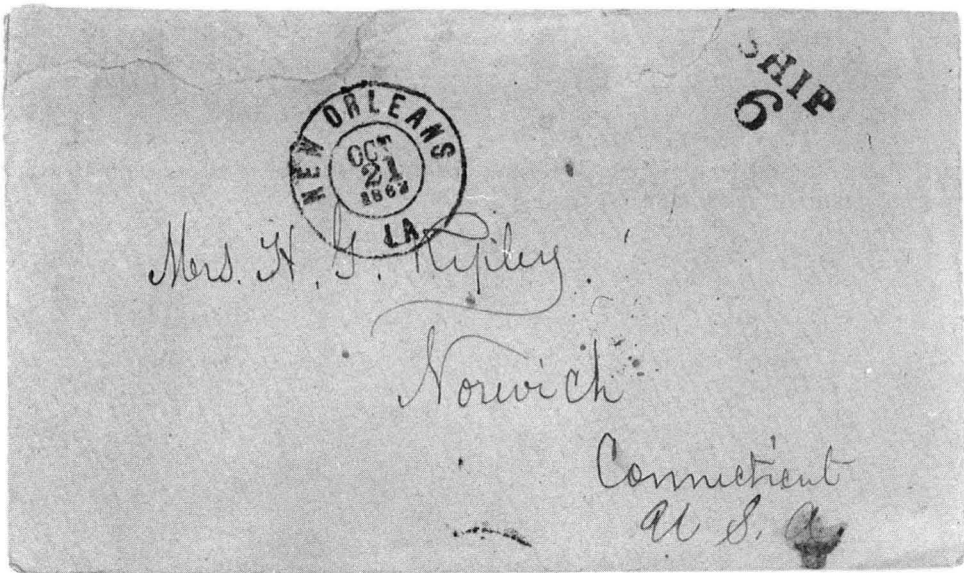 SHIP
6
NEW ORLEANS
OCT
21
1862
LA
Mrs. H. G. Ripley.
Norwich
Connecticut
U. S. A.